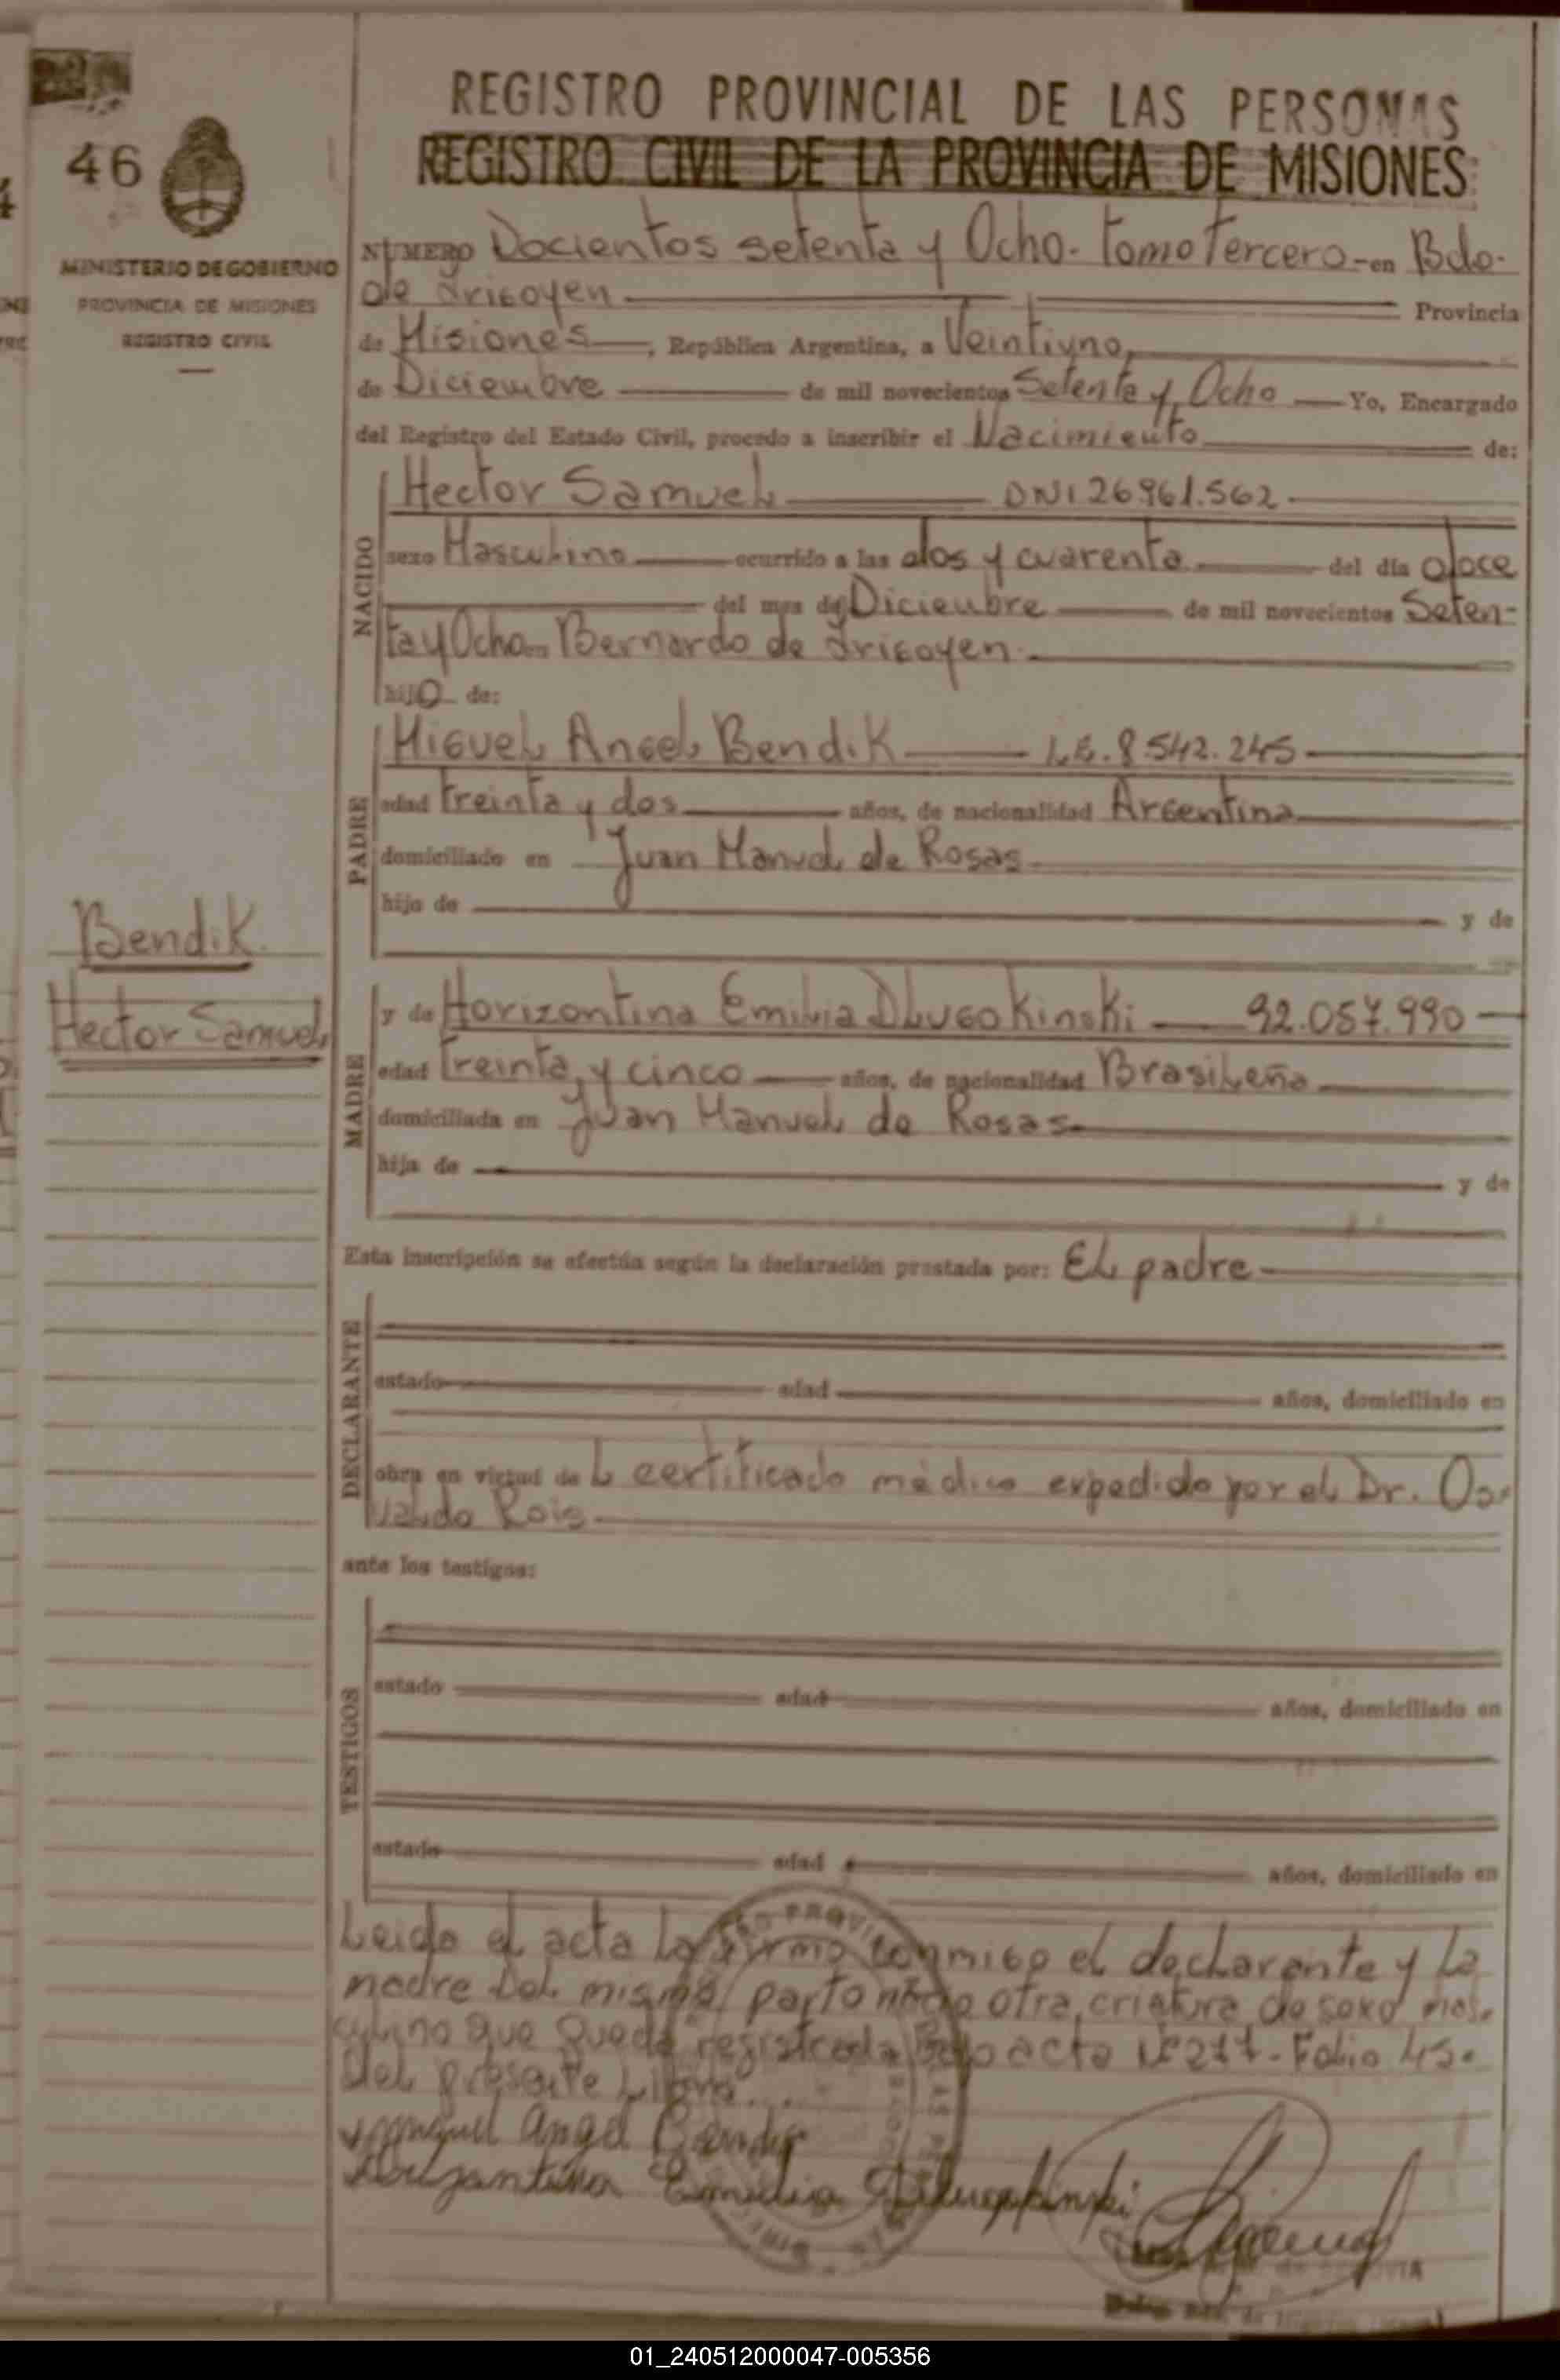 REGISTRO PROVINCIAL DE LAS PERSONAS
REGISTRO CIVIL DE LA PROVINCIA DE MISIONES
46
MINISTERIO DE GOBIERNO
PROVINCIA DE MISIONES
REGISTRO CIVIL
NUMERO Docientos setenta y Ocho. Tomo Tercero - en Bdo.
de Irigoyen Provincia
de Misiones, República Argentina, a Veintiuno,
de Diciembre de mil novecientos Setenta y Ocho Yo, Encargado
del Registro del Estado Civil, procedo a inscribir el Nacimiento de:
NACIDO
Hector Samuel DNI 26961.562
sexo Masculino ocurrido a las dos y cuarenta del día doce
del mes de Diciembre de mil novecientos Seten-
ta y Ocho en Bernardo de Irigoyen.
hijo de:
PADRE
Miguel Angel Bendik L.E. 8.542.245
edad Treinta y dos años, de nacionalidad Argentina
domiciliado en Juan Manuel de Rosas
hijo de y de
Bendik.
Hector Samuel
MADRE
y de Horizontina Emilia Dlugokinski 92.057.990
edad Treinta y cinco años, de nacionalidad Brasileña
domiciliada en Juan Manuel de Rosas
hija de y de
Esta inscripción se efectúa según la declaración prestada por: El padre
DECLARANTE
estado edad años, domiciliado en
obra en virtud de L certificado médico expedido por el Dr. Os-
valdo Rois.
ante los testigos:
TESTIGOS
estado edad años, domiciliado en
estado edad años, domiciliado en
Leido el acta la firma conmigo el declarante y la
madre Del mismo parto nació otra criatura de sexo mas-
culino que queda registrada bajo acta Nº 277 - Folio 45.
Del presente Libro...
Miguel Angel Bendik
Horizontina Emilia Dlugokinski
01_240512000047-005356